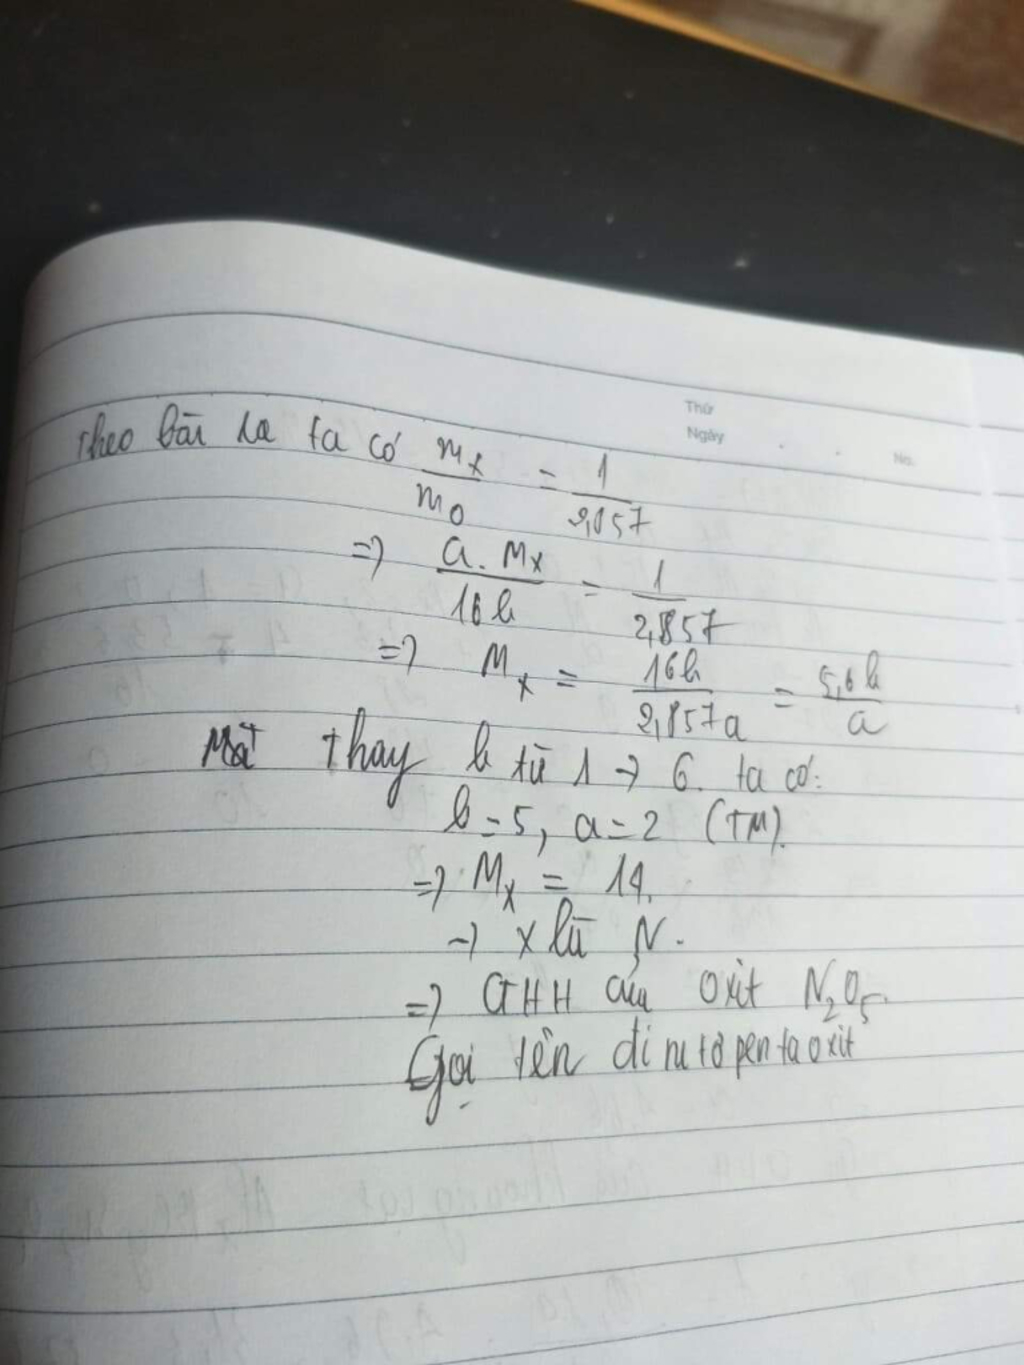 Thứ
Ngày
No.
Theo bài ra ta có m_X/m_O = 1/2,857
=> a.M_X/16b = 1/2,857
=> M_X = 16b/2,857a = 5,6b/a
thay b từ 1 → 6. ta có:
b = 5, a = 2 (TM).
=> M_X = 14.
→ X là N.
=> CTHH của oxit N2O5.
Gọi tên đi nitơ pentaoxit